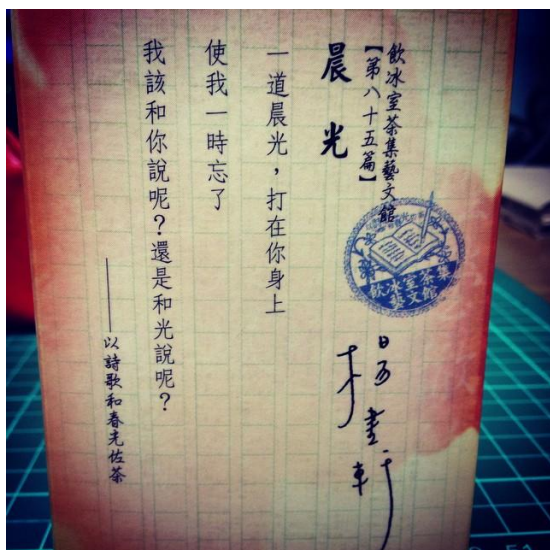 飲冰室茶集藝文館
【第八十五篇】
晨光
一道晨光，打在你身上
使我一時忘了
我該和你說呢？還是和光說呢？
——以詩歌和春光佐茶
飲冰室茶集
藝文館
楊書軒